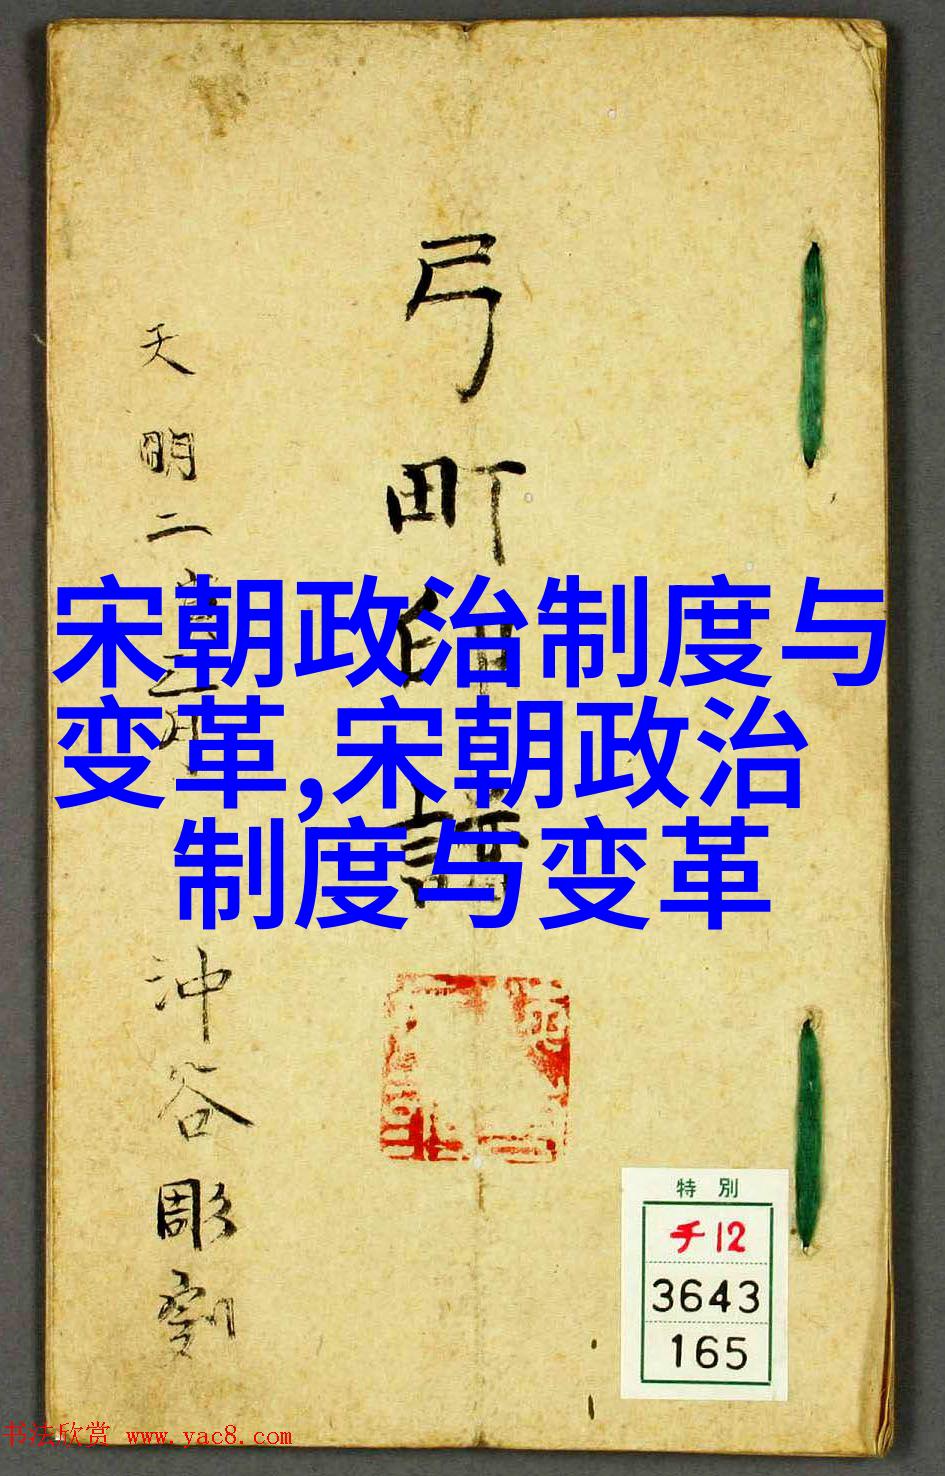 弓町印譜
天明二寅正月
沖谷彫
宋朝政治制度与
变革,宋朝政治
制度与变革
特別
チ12
3643
165
书法欣赏 www.yac8.com